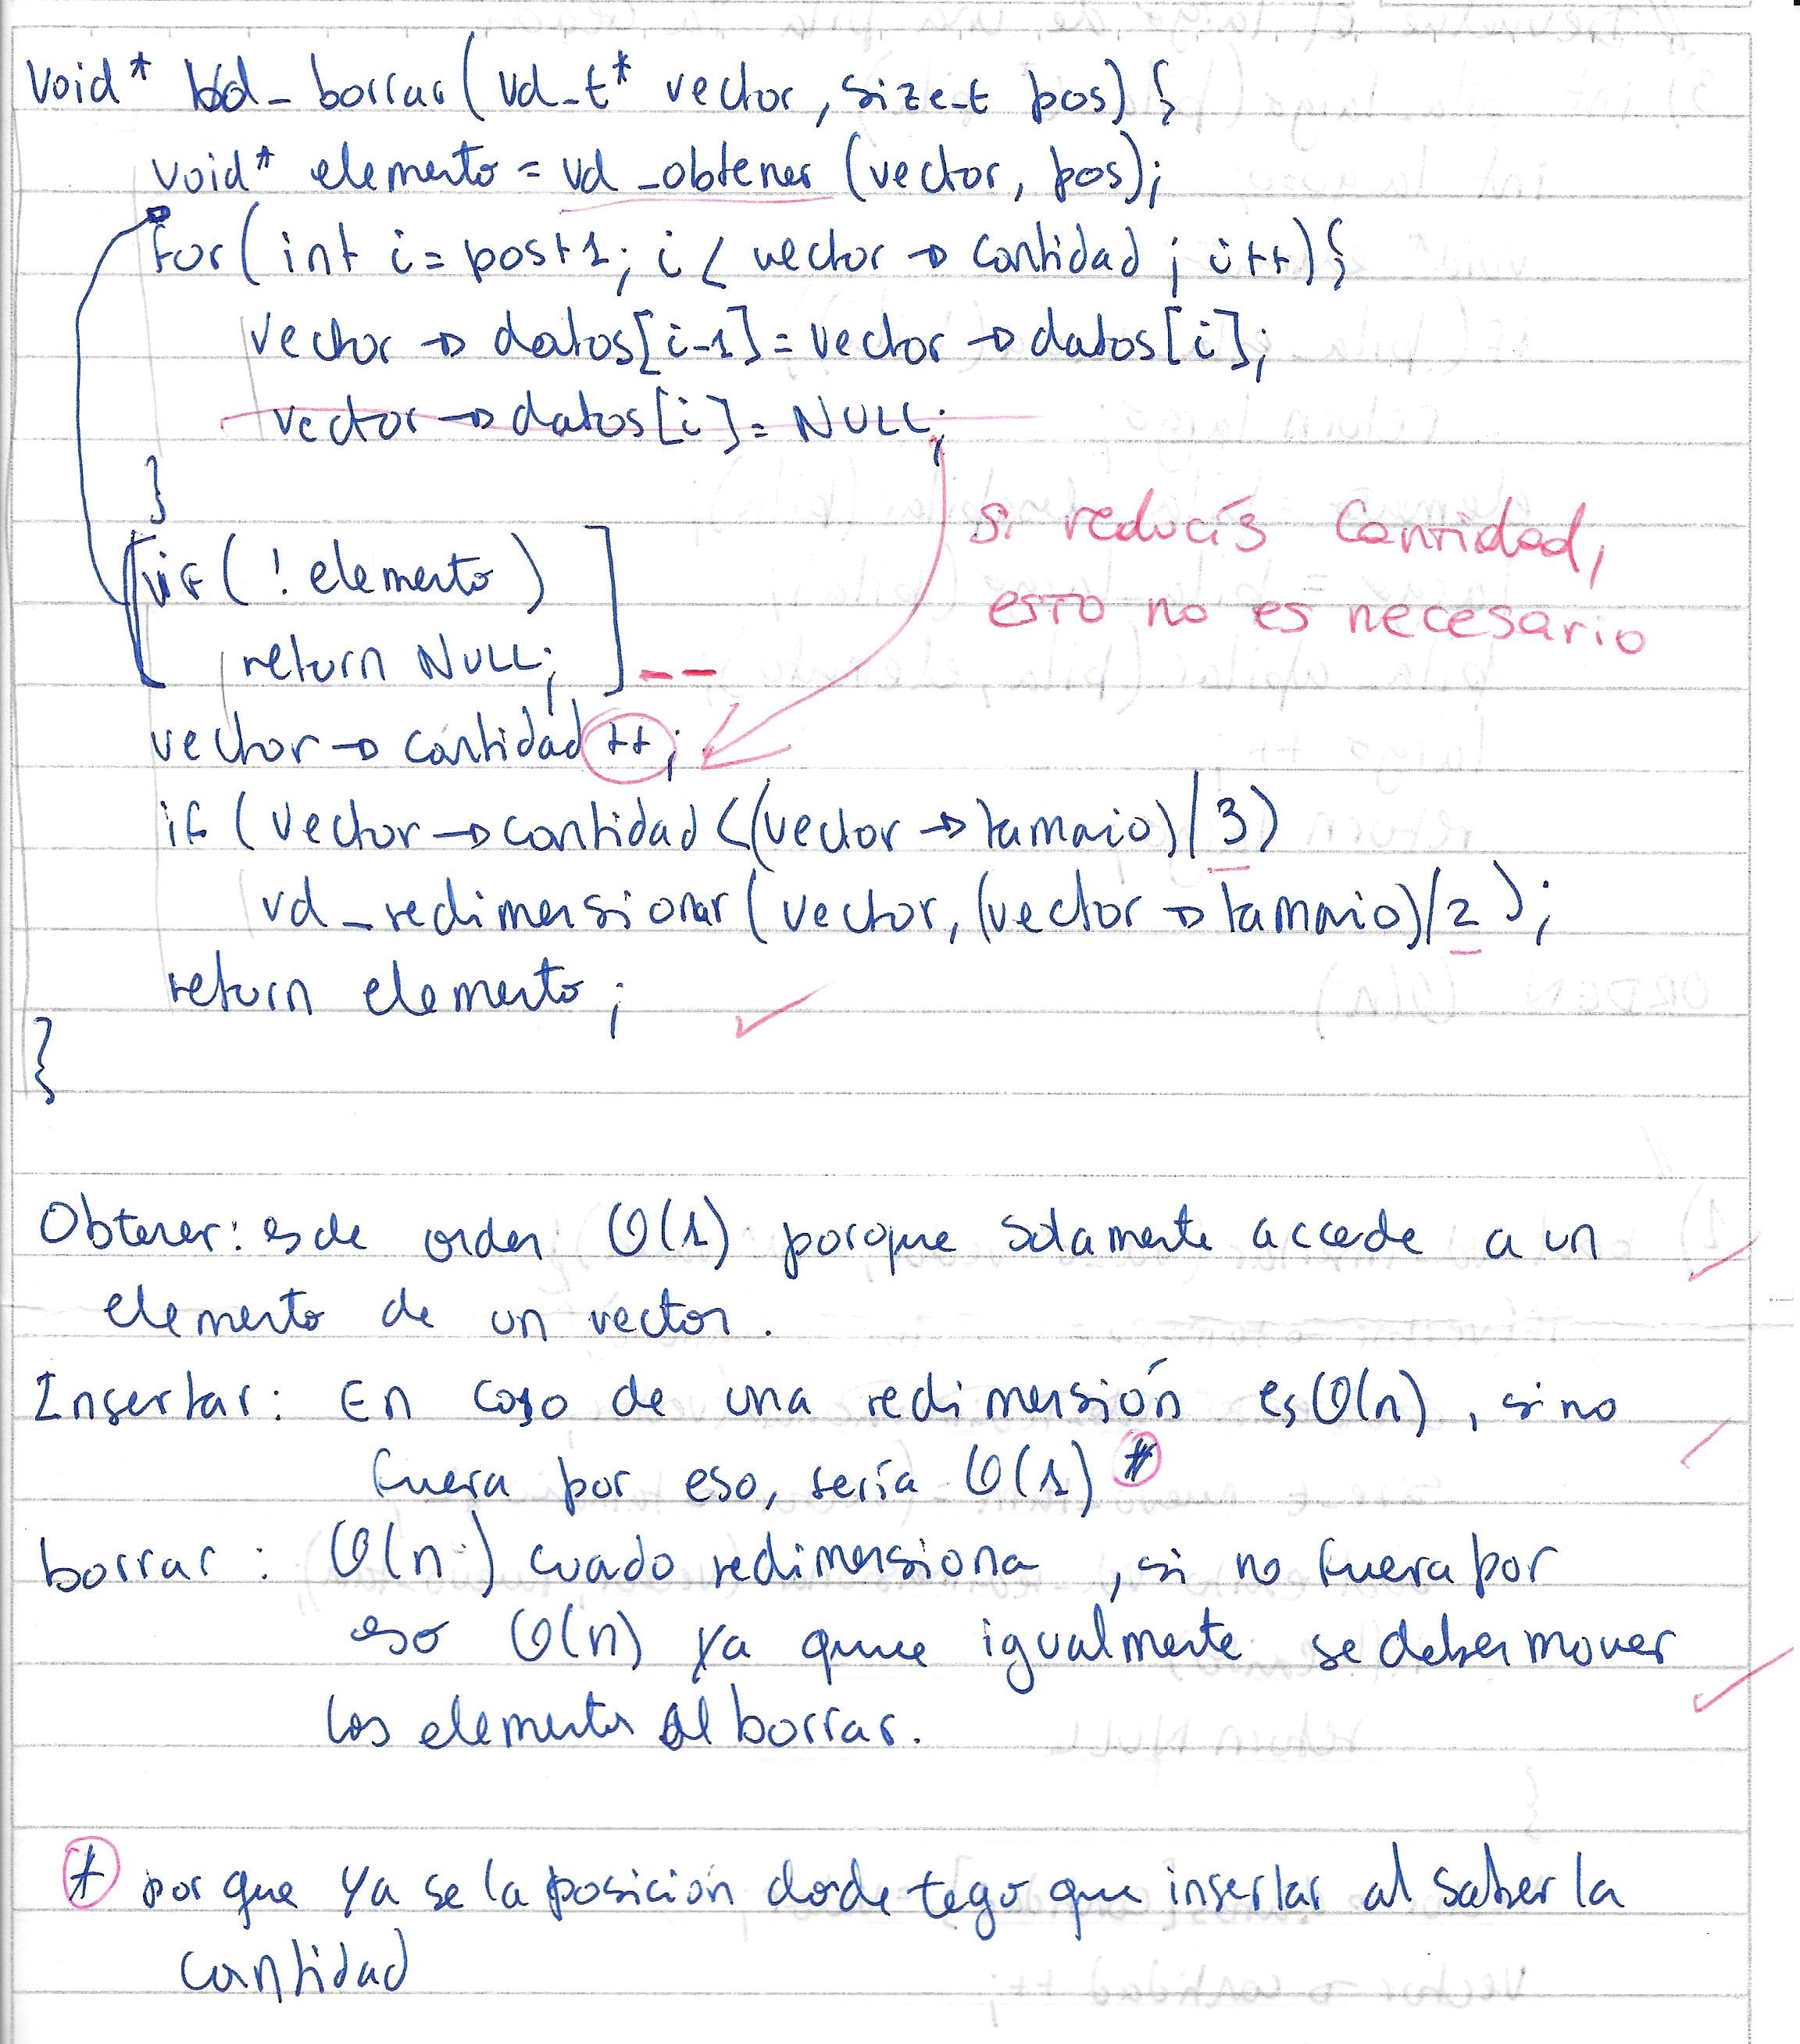 void* vd_borrar(vd_t* vector, size_t pos) {
void* elemento = vd_obtener (vector, pos);
for( int i = pos+1; i < vector → cantidad ; i++){
vector → datos[i-1] = vector → datos[i];
vector → datos[i] = NULL;
}
si reducís cantidad,
if ( ! elemento)
esto no es necesario
return NULL; --
vector → cantidad ++;
if (vector → cantidad < (vector → tamaio)/3)
vd_redimensionar (vector, (vector → tamaio)/2 );
return elemento ;
}
Obtener: es de orden O(1) porque solamente accede a un
elemento de un vector.
Insertar: En caso de una redimensión es O(n), si no
fuera por eso, sería O(1) *
borrar : O(n) cuado redimensiona , si no fuera por
eso O(n) ya que igualmente se deben mover
los elementos al borrar.
* por que ya se la posición donde tego que insertar al saber la
cantidad